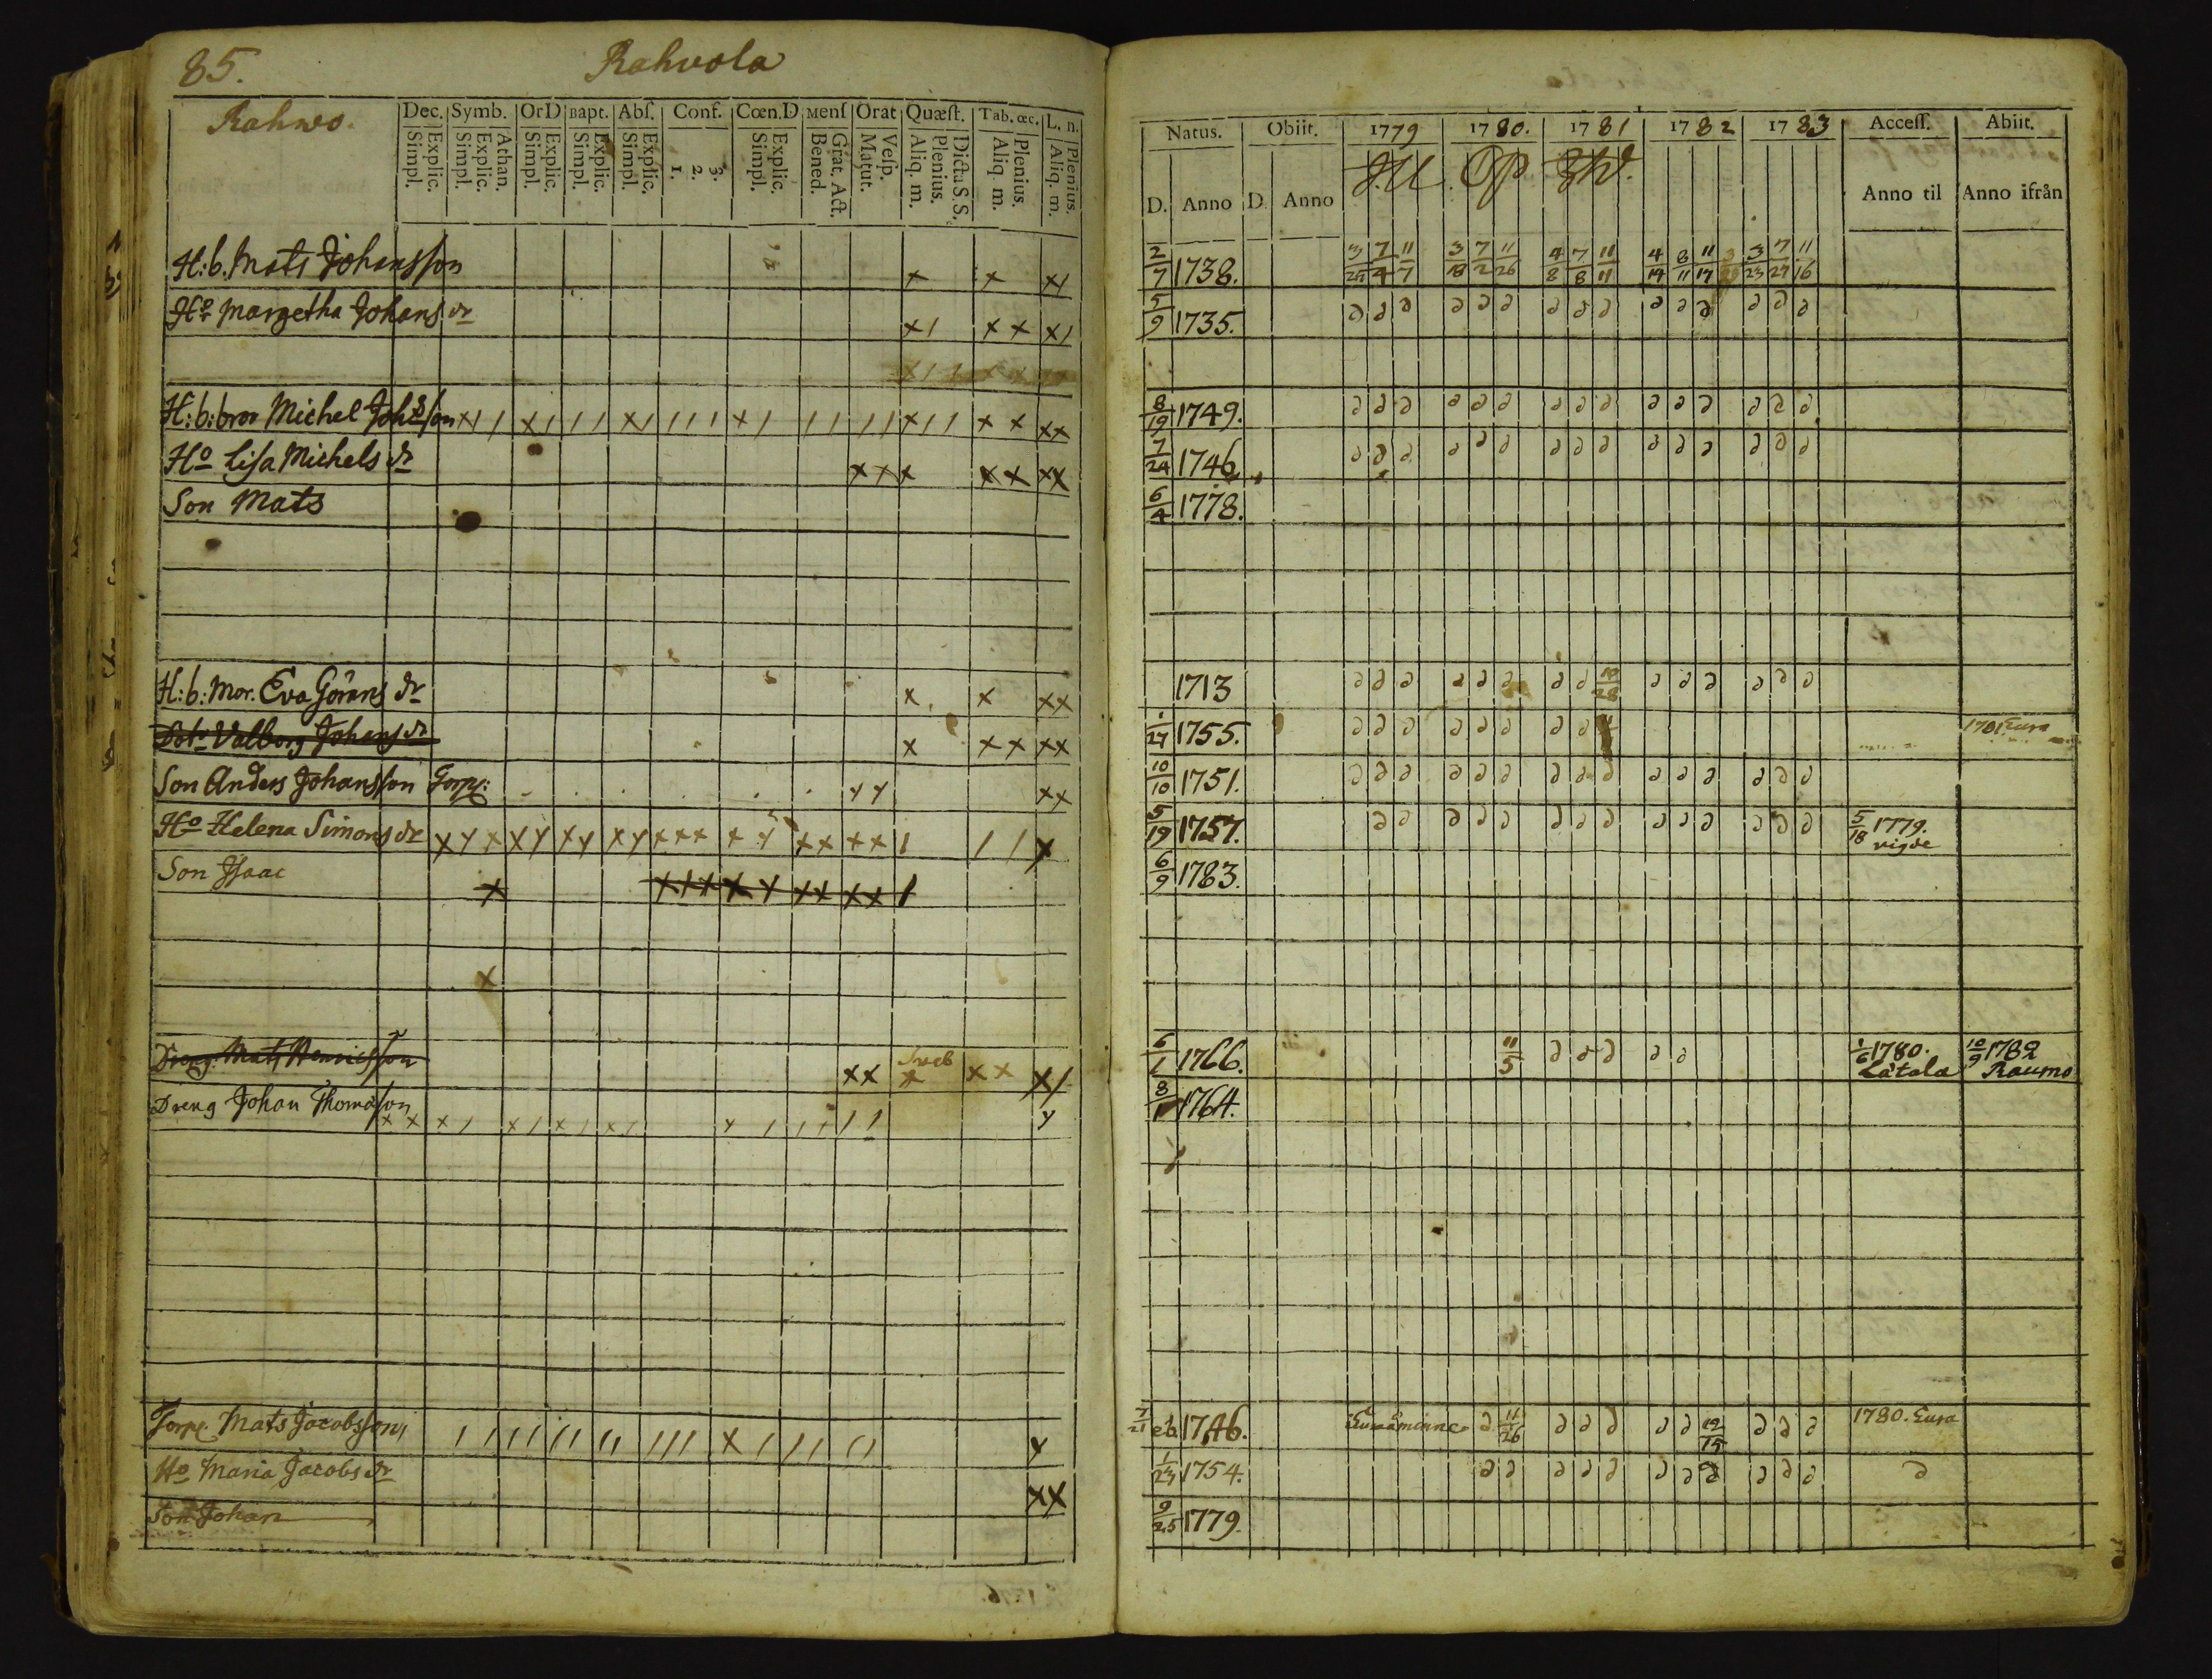 85. Rahvola
Rahwo.
Dec. Symb. OrD Bapt. Abſ. Conf. Cœn.D Menſ Orat Quæſt. Tab. œc. L. n.
Simpl. Explic. Simpl. Explic. Athan. Simpl. Explic. Simpl. Explic. Simpl. Explic. 1. 2. 3. Simpl. Explic. Bened. Grat. Act. Matut. Veſp. Aliq. m. Plenius. Dicta S. S. Aliq. m. Plenius. Aliq. m. Plenius.
Natus. Obiit. 1779 1780. 1781 1782 1783 Acceſſ. Abiit.
D. Anno D Anno Anno til Anno ifrån
H:b. Mats Johansson x x x/ 2/7 1738. 3/25 7/4 11/7 3/18 7/2 11/26 4/8 7/8 11/11 4/14 8/11 11/17 3/23 7/27 11/16
Ho Margetha Johans dr x/ x x x/ 5/9 1735. ∂ ∂ ∂ ∂ ∂ ∂ ∂ ∂ ∂ ∂ ∂ ∂ ∂ ∂ ∂
H:b:bror Michel Johsson x / / x / / / x / / / / x / / / / / x / / x x x x 8/19 1749. ∂ ∂ ∂ ∂ ∂ ∂ ∂ ∂ ∂ ∂ ∂ ∂ ∂ ∂ ∂
Ho Lisa Michels dr x x x x x x x 7/24 1746. ∂ ∂ ∂ ∂ ∂ ∂ ∂ ∂ ∂ ∂ ∂ ∂ ∂ ∂ ∂
Son Mats 6/4 1778.
H:b: Mor. Eva Görans dr x x x x 1713 ∂ ∂ ∂ ∂ ∂ ∂ ∂ ∂ ∂ ∂ ∂ ∂ ∂ ∂
Dotr Valborg Johans dr x x x x x 1/27 1755. ∂ ∂ ∂ ∂ ∂ ∂ ∂ ∂ 1781 Eura
Son Anders Johansson Torp: x x x x 10/10 1751. ∂ ∂ ∂ ∂ ∂ ∂ ∂ ∂ ∂ ∂ ∂ ∂ ∂ ∂ ∂
Ho Helena Simons dr x y x x y x y x y x x x x y x x x x / / / x 5/19 1757. ∂ ∂ ∂ ∂ ∂ ∂ ∂ ∂ ∂ ∂ ∂ ∂ ∂ ∂ 5/18 1779.
vigde
Son Isaac x x / x x y x x x x / 6/9 1783.
x
Dreng. Mats Henricsson x x x x x x/ 6/1 1766. 11/5 ∂ ∂ ∂ ∂ ∂ 1/6 1780. 10/9 1782
Låtala Raumo
Dreng Johan Thomasson x x x / x / x / x / y / / / / / y 8/1 1764.
Torp. Mats Jacobsson / / / / / / / / / / / x / / / / / y 1746. Euraåminne ∂ 11/26 ∂ ∂ ∂ ∂ ∂ 12/15 ∂ ∂ ∂ 1780. Eura
Ho Maria Jacobs dr x x 1/23 1754. ∂ ∂ ∂ ∂ ∂ ∂ ∂ ∂ ∂ ∂ ∂ ∂
Son Johan 9/25 1779.